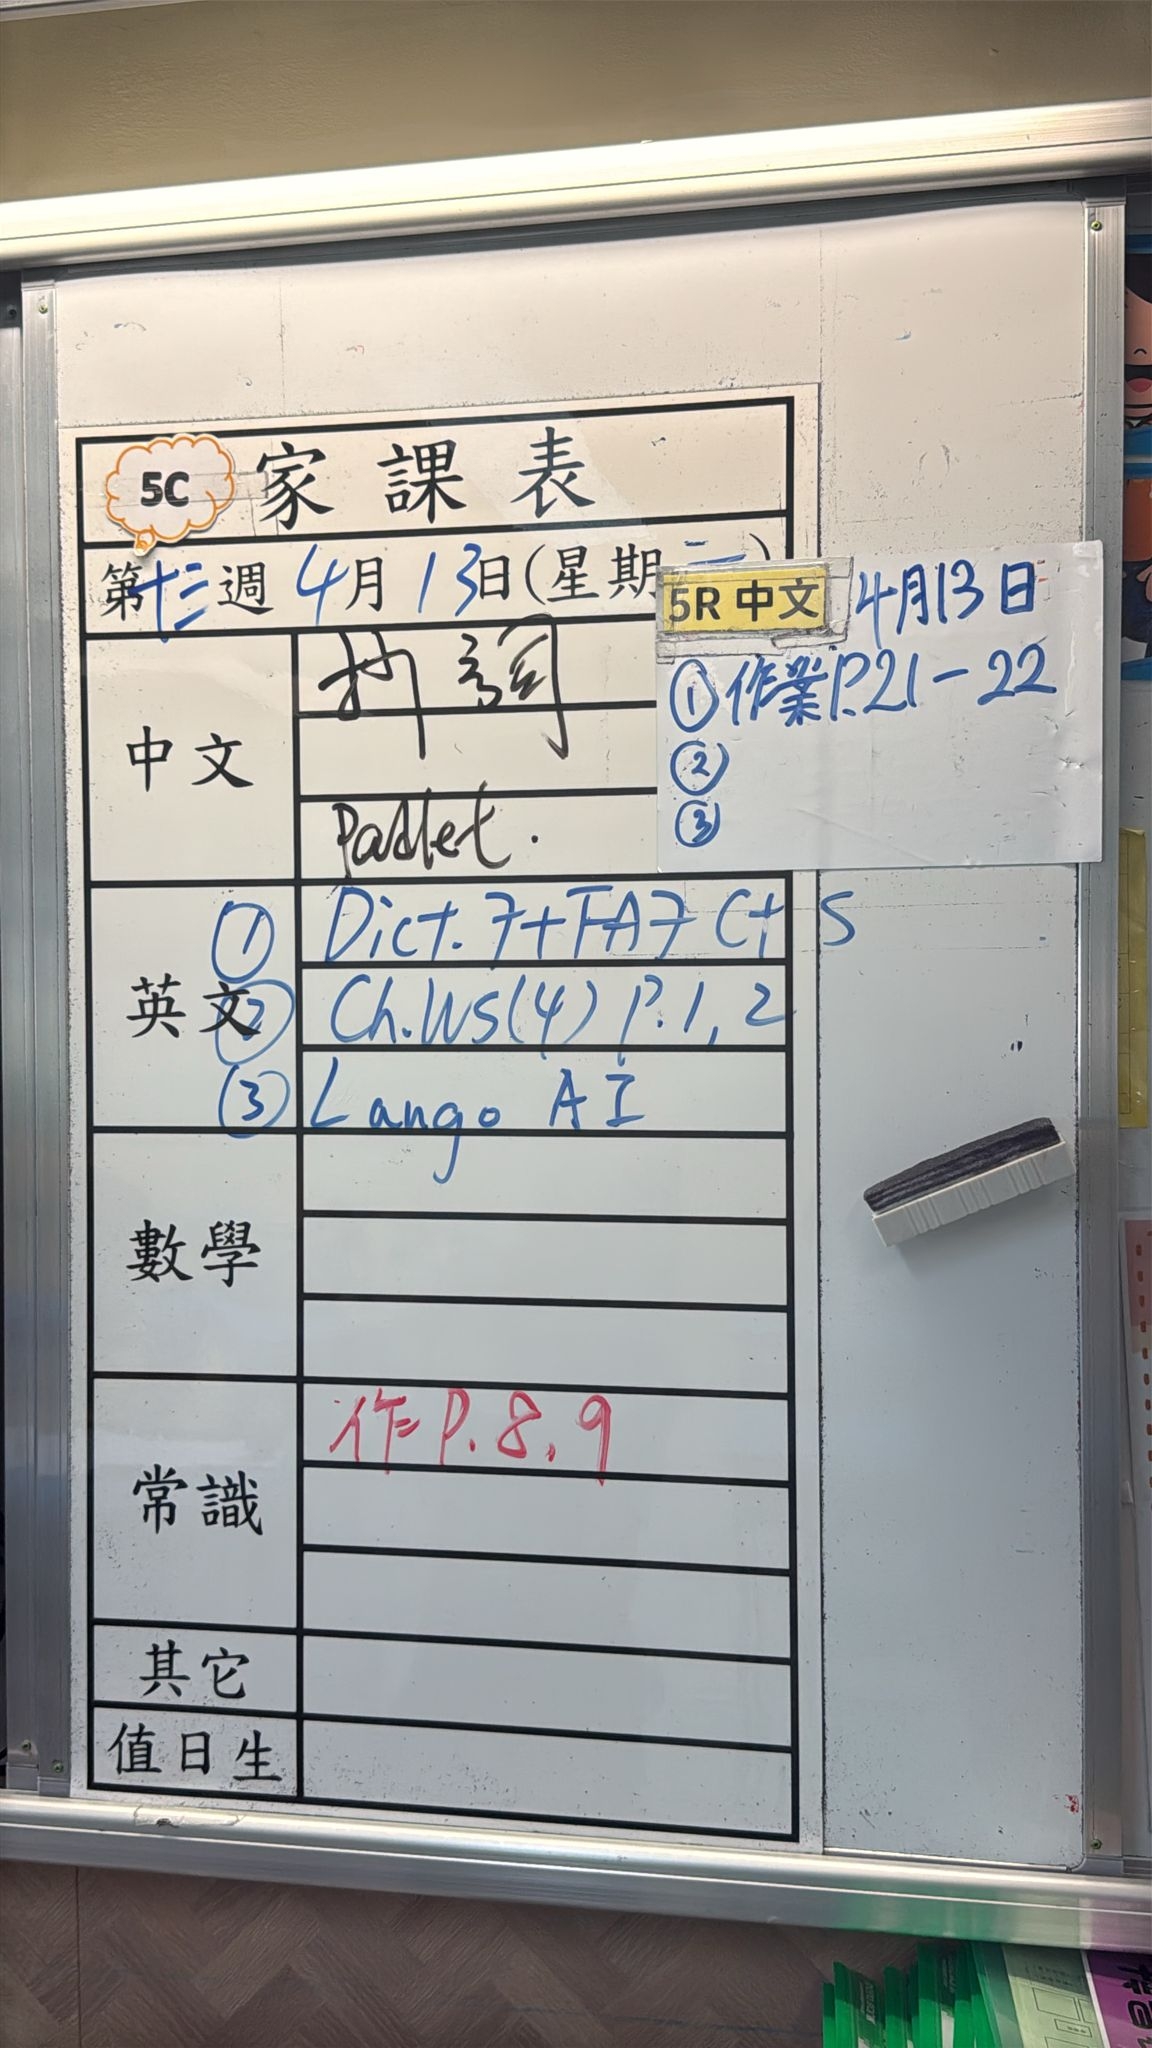 5C 家課表
第十三週 4月13日(星期二)
5R 中文 4月13日
① 作業P.21-22
②
③
中文
抄詞
Padlet.
英文
① Dict. 7+TA7 C+S
② Ch.WS(4) P.1, 2
③ Lango AI
數學
常識
作 P. 8, 9
其它
值日生